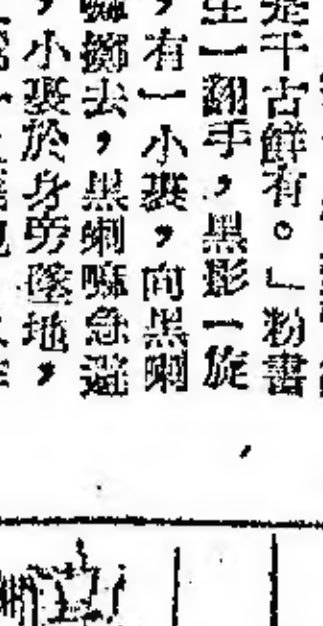 是千古鮮有。」粉書
生一翻手，黑影一旋
，有一小裹，向黑喇
嘛擲去，黑喇嘛急避
，小裹於身旁墜地，